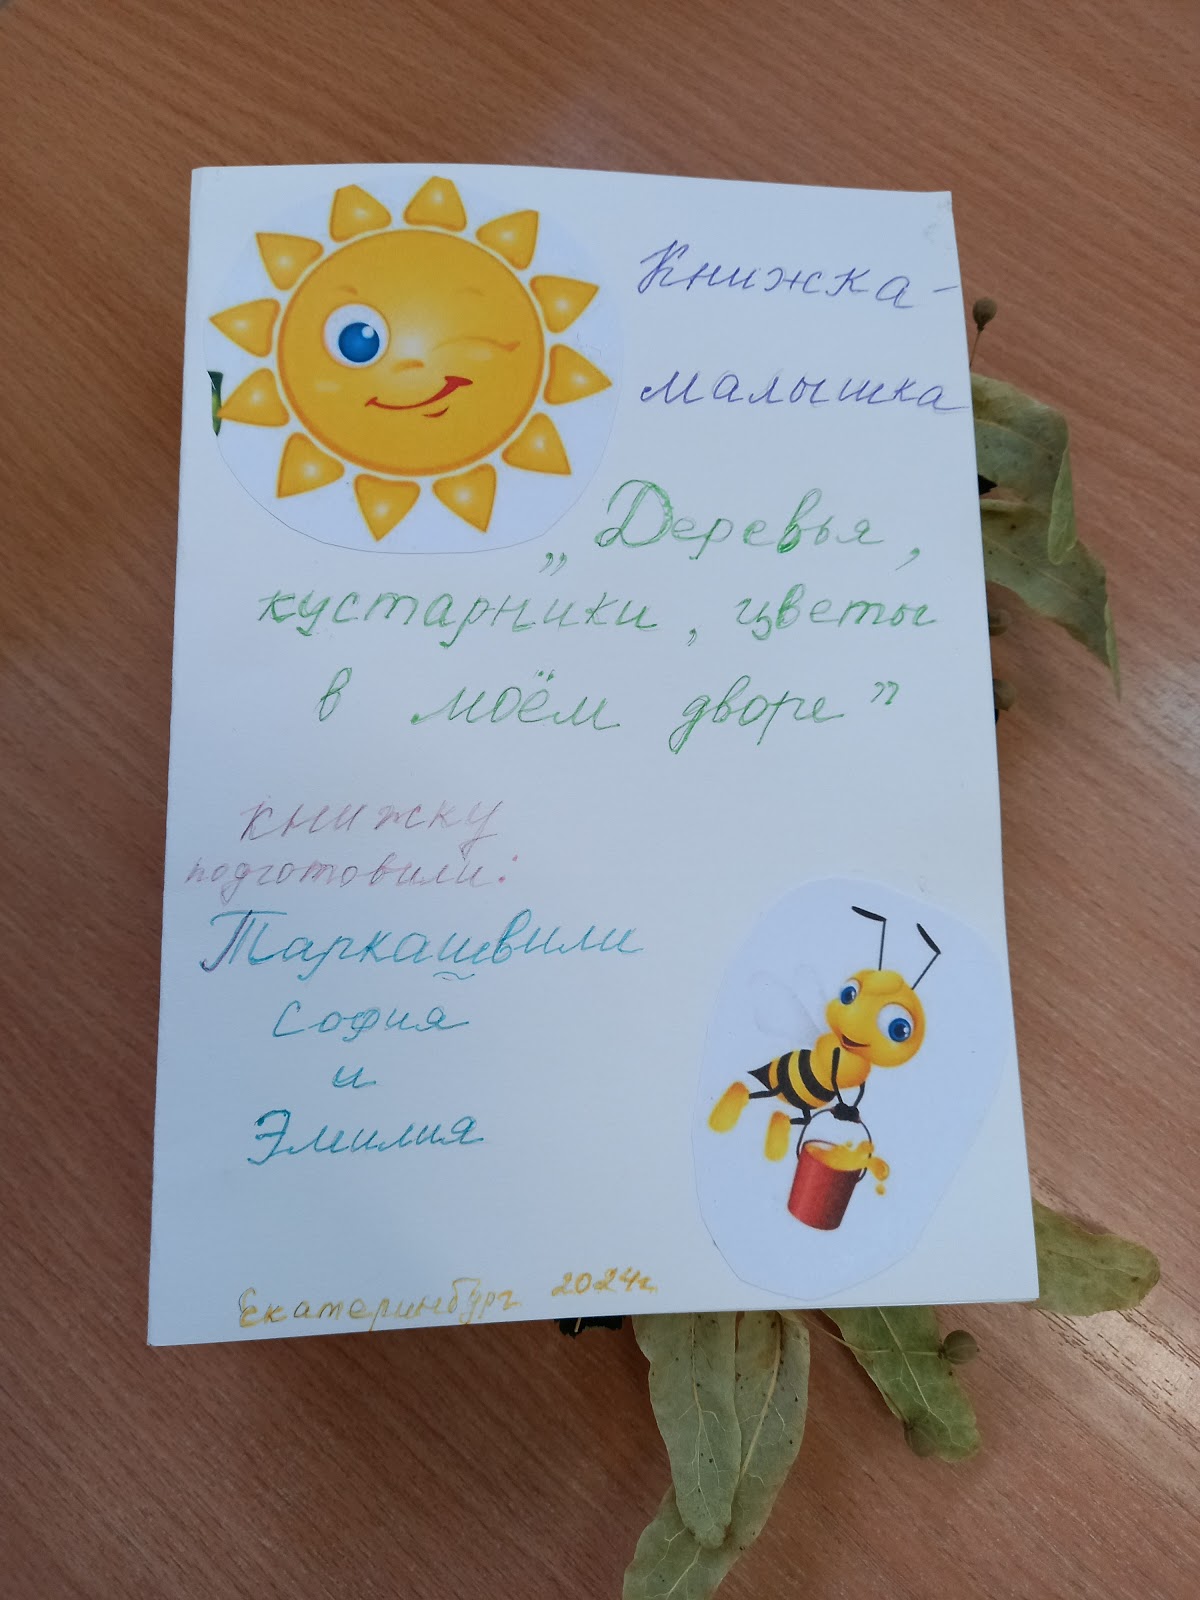 Книжка-
малышка
„Деревья,
кустарники, цветы
в моём дворе”
книжку
подготовили:
Таркашвили
София
и
Эмилия
Екатеринбург 2024г.